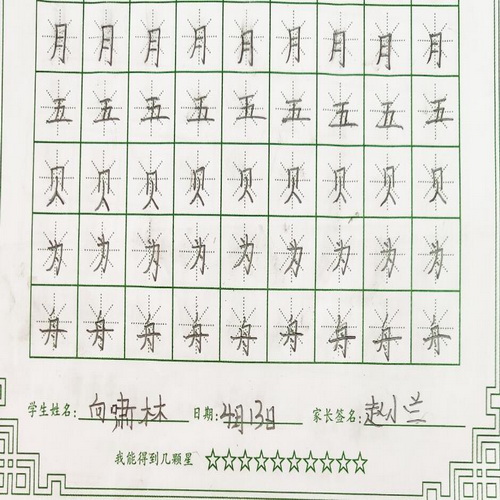 月 月 月 月 月 月 月 月 月
五 五 五 五 五 五 五 五 五
贝 贝 贝 贝 贝 贝 贝 贝 贝
为 为 为 为 为 为 为 为 为
舟 舟 舟 舟 舟 舟 舟 舟 舟
学生姓名: 向啸林 日期: 4月13日 家长签名: 赵小兰
我能得到几颗星 ☆☆☆☆☆☆☆☆☆☆